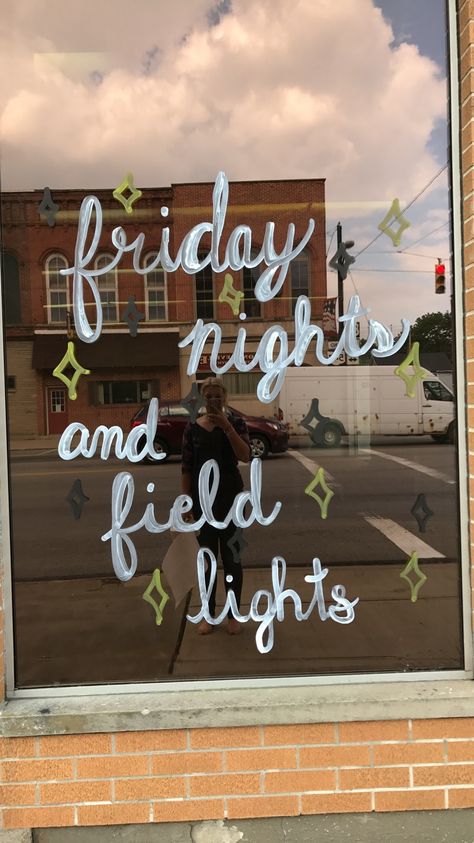 friday
nights
and field
lights